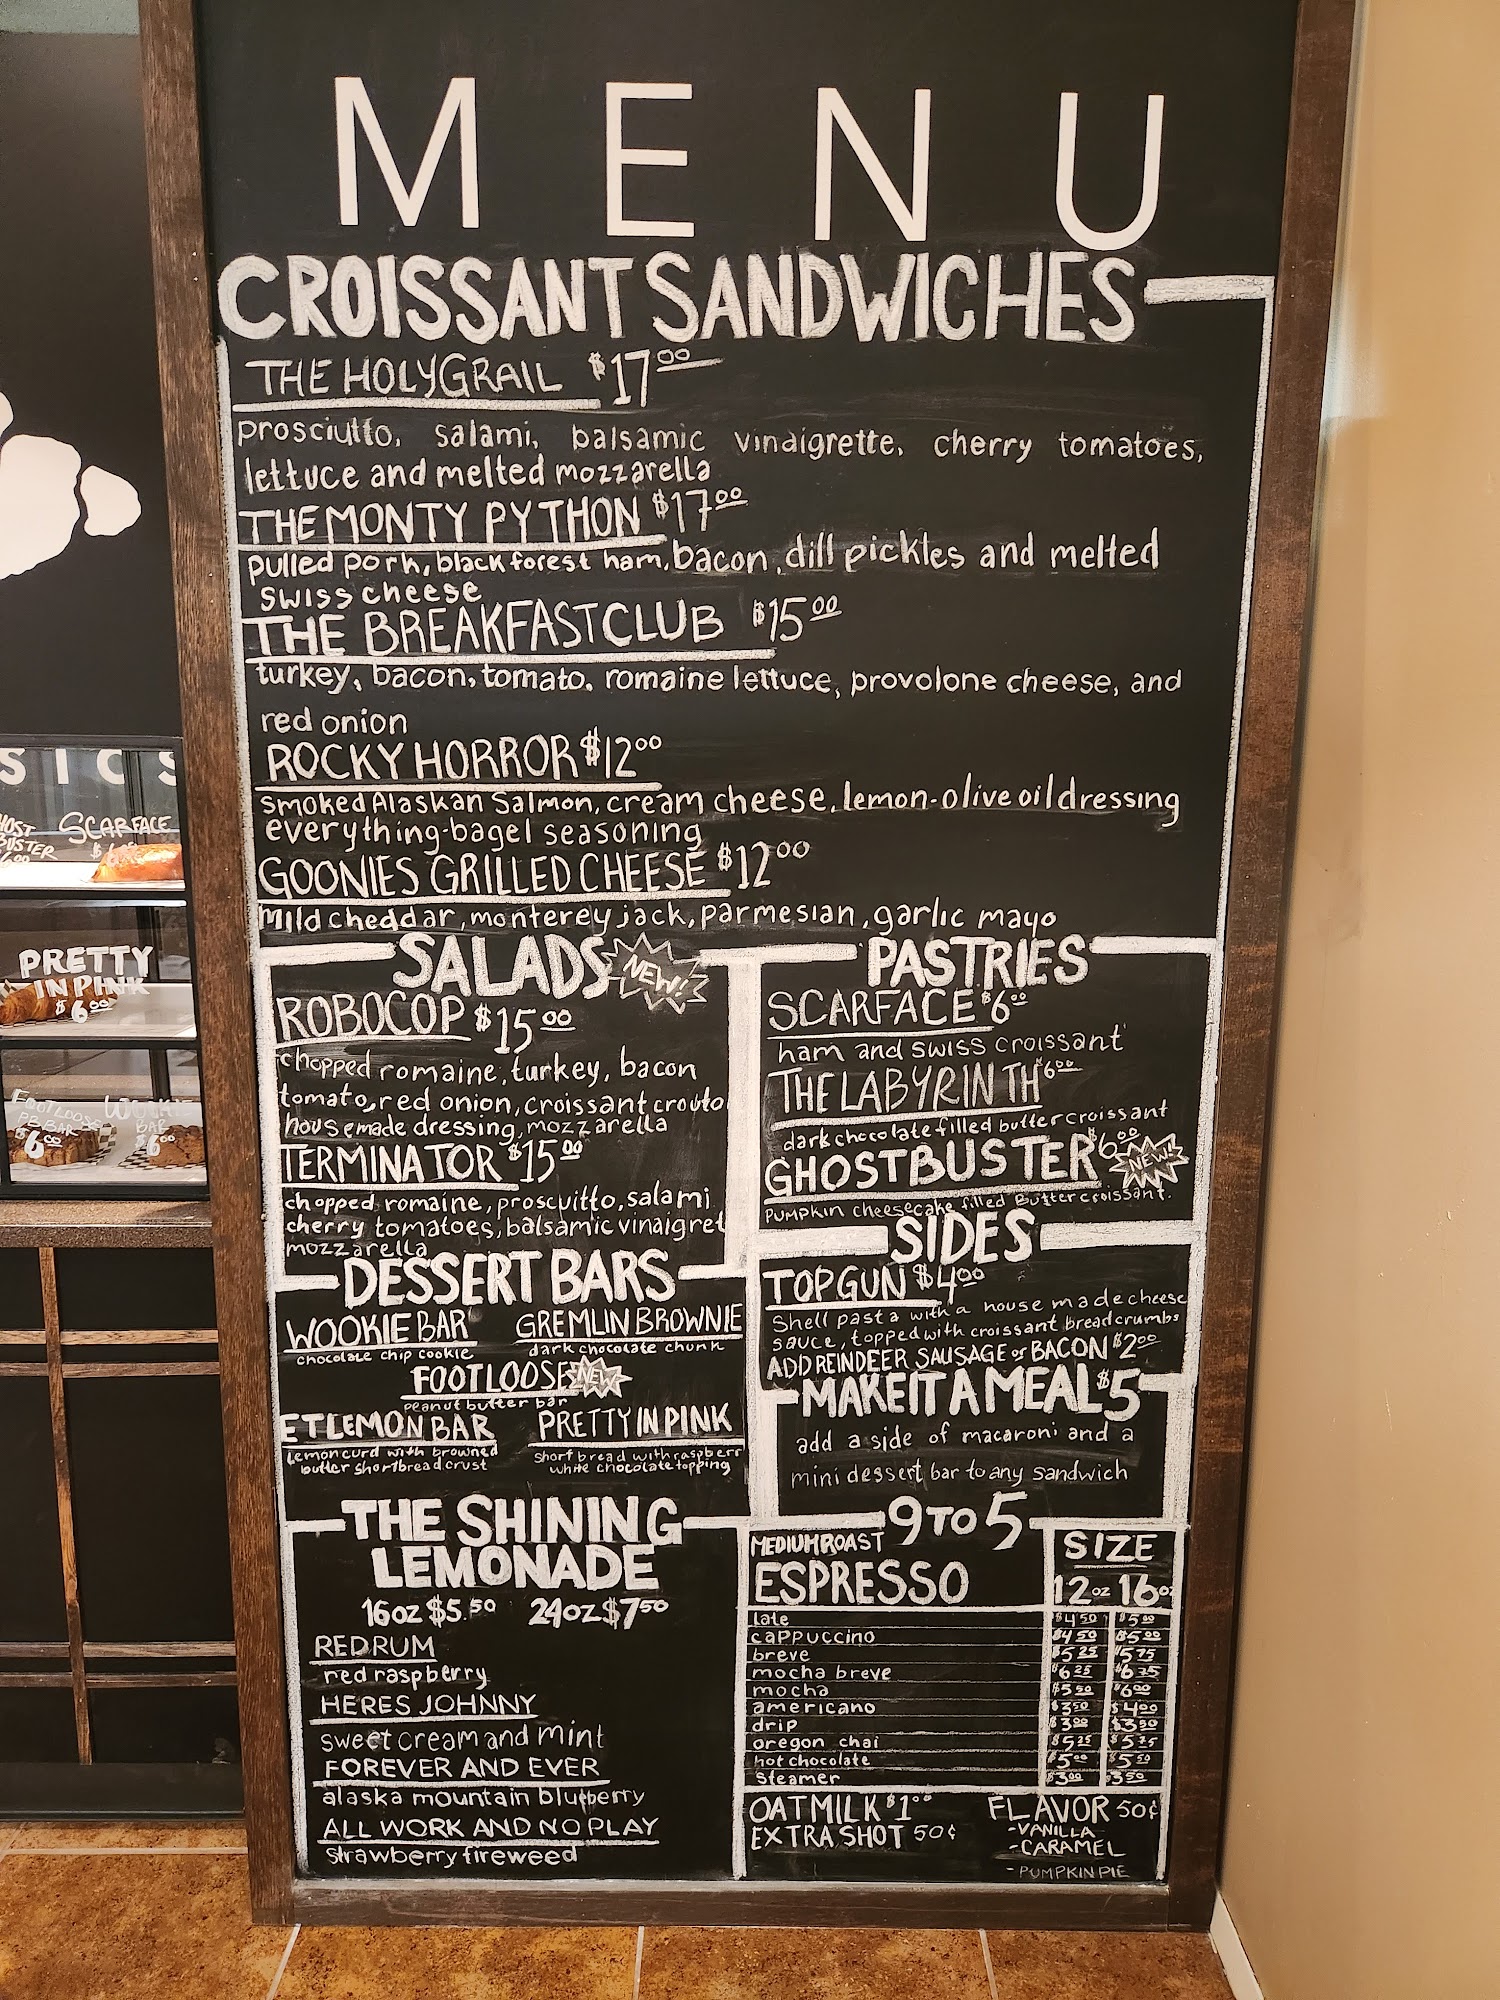 MENU
CROISSANT SANDWICHES
THE HOLY GRAIL $17.00
prosciutto, salami, balsamic vinaigrette, cherry tomatoes,
lettuce and melted mozzarella
THE MONTY PYTHON $17.00
pulled pork, black forest ham, bacon, dill pickles and melted
swiss cheese
THE BREAKFAST CLUB $15.00
turkey, bacon, tomato, romaine lettuce, provolone cheese, and
red onion
ROCKY HORROR $12.00
smoked Alaskan Salmon, cream cheese, lemon-olive oil dressing
everything-bagel seasoning
GOONIES GRILLED CHEESE $12.00
Mild cheddar, monterey jack, parmesian, garlic mayo
SALADS NEW!
ROBOCOP $15.00
chopped romaine, turkey, bacon
tomato, red onion, croissant crouto
housemade dressing, mozzarella
TERMINATOR $15.00
chopped romaine, proscuitto, salami
cherry tomatoes, balsamic vinaigret
mozzarella
PASTRIES
SCARFACE $6.00
ham and swiss croissant
THE LABYRINTH $6.00
dark chocolate filled butter croissant
GHOSTBUSTER $6.00 NEW!
PUMPKIN cheesecake filled Butter croissant.
DESSERT BARS
WOOKIE BAR GREMLIN BROWNIE
chocolate chip cookie dark chocolate chunk
FOOTLOOSE NEW
peanut butter bar
ET LEMON BAR PRETTY IN PINK
lemon curd with browned short bread with raspberr
butter shortbread crust white chocolate topping
SIDES
TOP GUN $4.00
Shell pasta with a house made cheese
sauce, topped with croissant breadcrumbs
ADD REINDEER SAUSAGE or BACON $2.00
MAKE IT A MEAL $5
add a side of macaroni and a
mini dessert bar to any sandwich
THE SHINING
LEMONADE
16oz $5.50 24oz $7.50
REDRUM
red raspberry
HERES JOHNNY
sweet cream and mint
FOREVER AND EVER
alaska mountain blueberry
ALL WORK AND NO PLAY
strawberry fireweed
9 TO 5
MEDIUM ROAST
ESPRESSO
SIZE
12oz 16oz
late $4.50 $5.00
cappuccino $4.50 $5.00
breve $5.25 $5.75
mocha breve $6.25 $6.75
mocha $5.50 $6.00
americano $3.50 $4.00
drip $3.00 $3.50
oregon chai $5.25 $5.75
hot chocolate $5.00 $5.50
steamer $3.00 $3.50
OATMILK $1.00
EXTRA SHOT 50¢
FLAVOR 50¢
-VANILLA
-CARAMEL
-PUMPKIN PIE
SICS
SCARFACE
PRETTY
IN PINK
$6.00
FOOTLOOSE
PB BAR
$6.00
BAR
$6.00